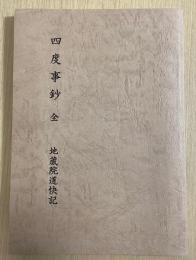 四度事鈔 全
地蔵院道快記